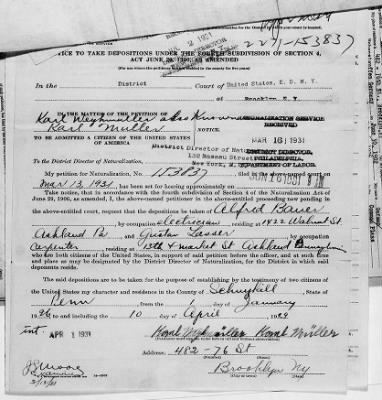 2271-153837
NOTICE TO TAKE DEPOSITIONS UNDER THE FOURTH SUBDIVISION OF SECTION 4,
ACT JUNE 29, 1906, AS AMENDED
In the District Court of United States, E. D. N. Y.
of Brooklyn N.Y.
IN THE MATTER OF THE PETITION OF
Karl Weyhmüller aka Known
Karl Müller
NOTICE.
TO BE ADMITTED A CITIZEN OF THE UNITED STATES
OF AMERICA
NATURALIZATION SERVICE
RECEIVED
MAR 16 1931
DISTRICT DIRECTOR,
PHILADELPHIA,
DEPARTMENT OF LABOR.
District Director of
132 Nassau Street
New York, N.
To the District Director of Naturalization:
My petition for Naturalization, No. 153837, filed in the above-named court on
Mar 12, 1931, has been set for hearing approximately on
Take notice, that in accordance with the fourth subdivision of Section 4 of the Naturalization Act of
June 29, 1906, as amended, I, the above-named petitioner in the above-entitled proceeding now pending in
the above-entitled court, request that the depositions be taken of Alfred Bauer
by occupation electrician, residing at 1422 Walnut St
Ashland Pa and Gustav Lasser by occupation
Carpenter, residing at 13th & Market St Ashland
who are both citizens of the United States, in support of said petition before the officer, and at such time and
place as may be designated by the District Director of Naturalization, for the District in which said
deponents reside.
The said depositions are to be taken for the purpose of establishing by the testimony of two citizens of
the United States my character and residence in the County of Schuylkill, State of
Penn from the 1 day of January
1926 to and including the 10 day of April 1929
int APR 1 1931
Address: 482-76 St
Brooklyn Ny